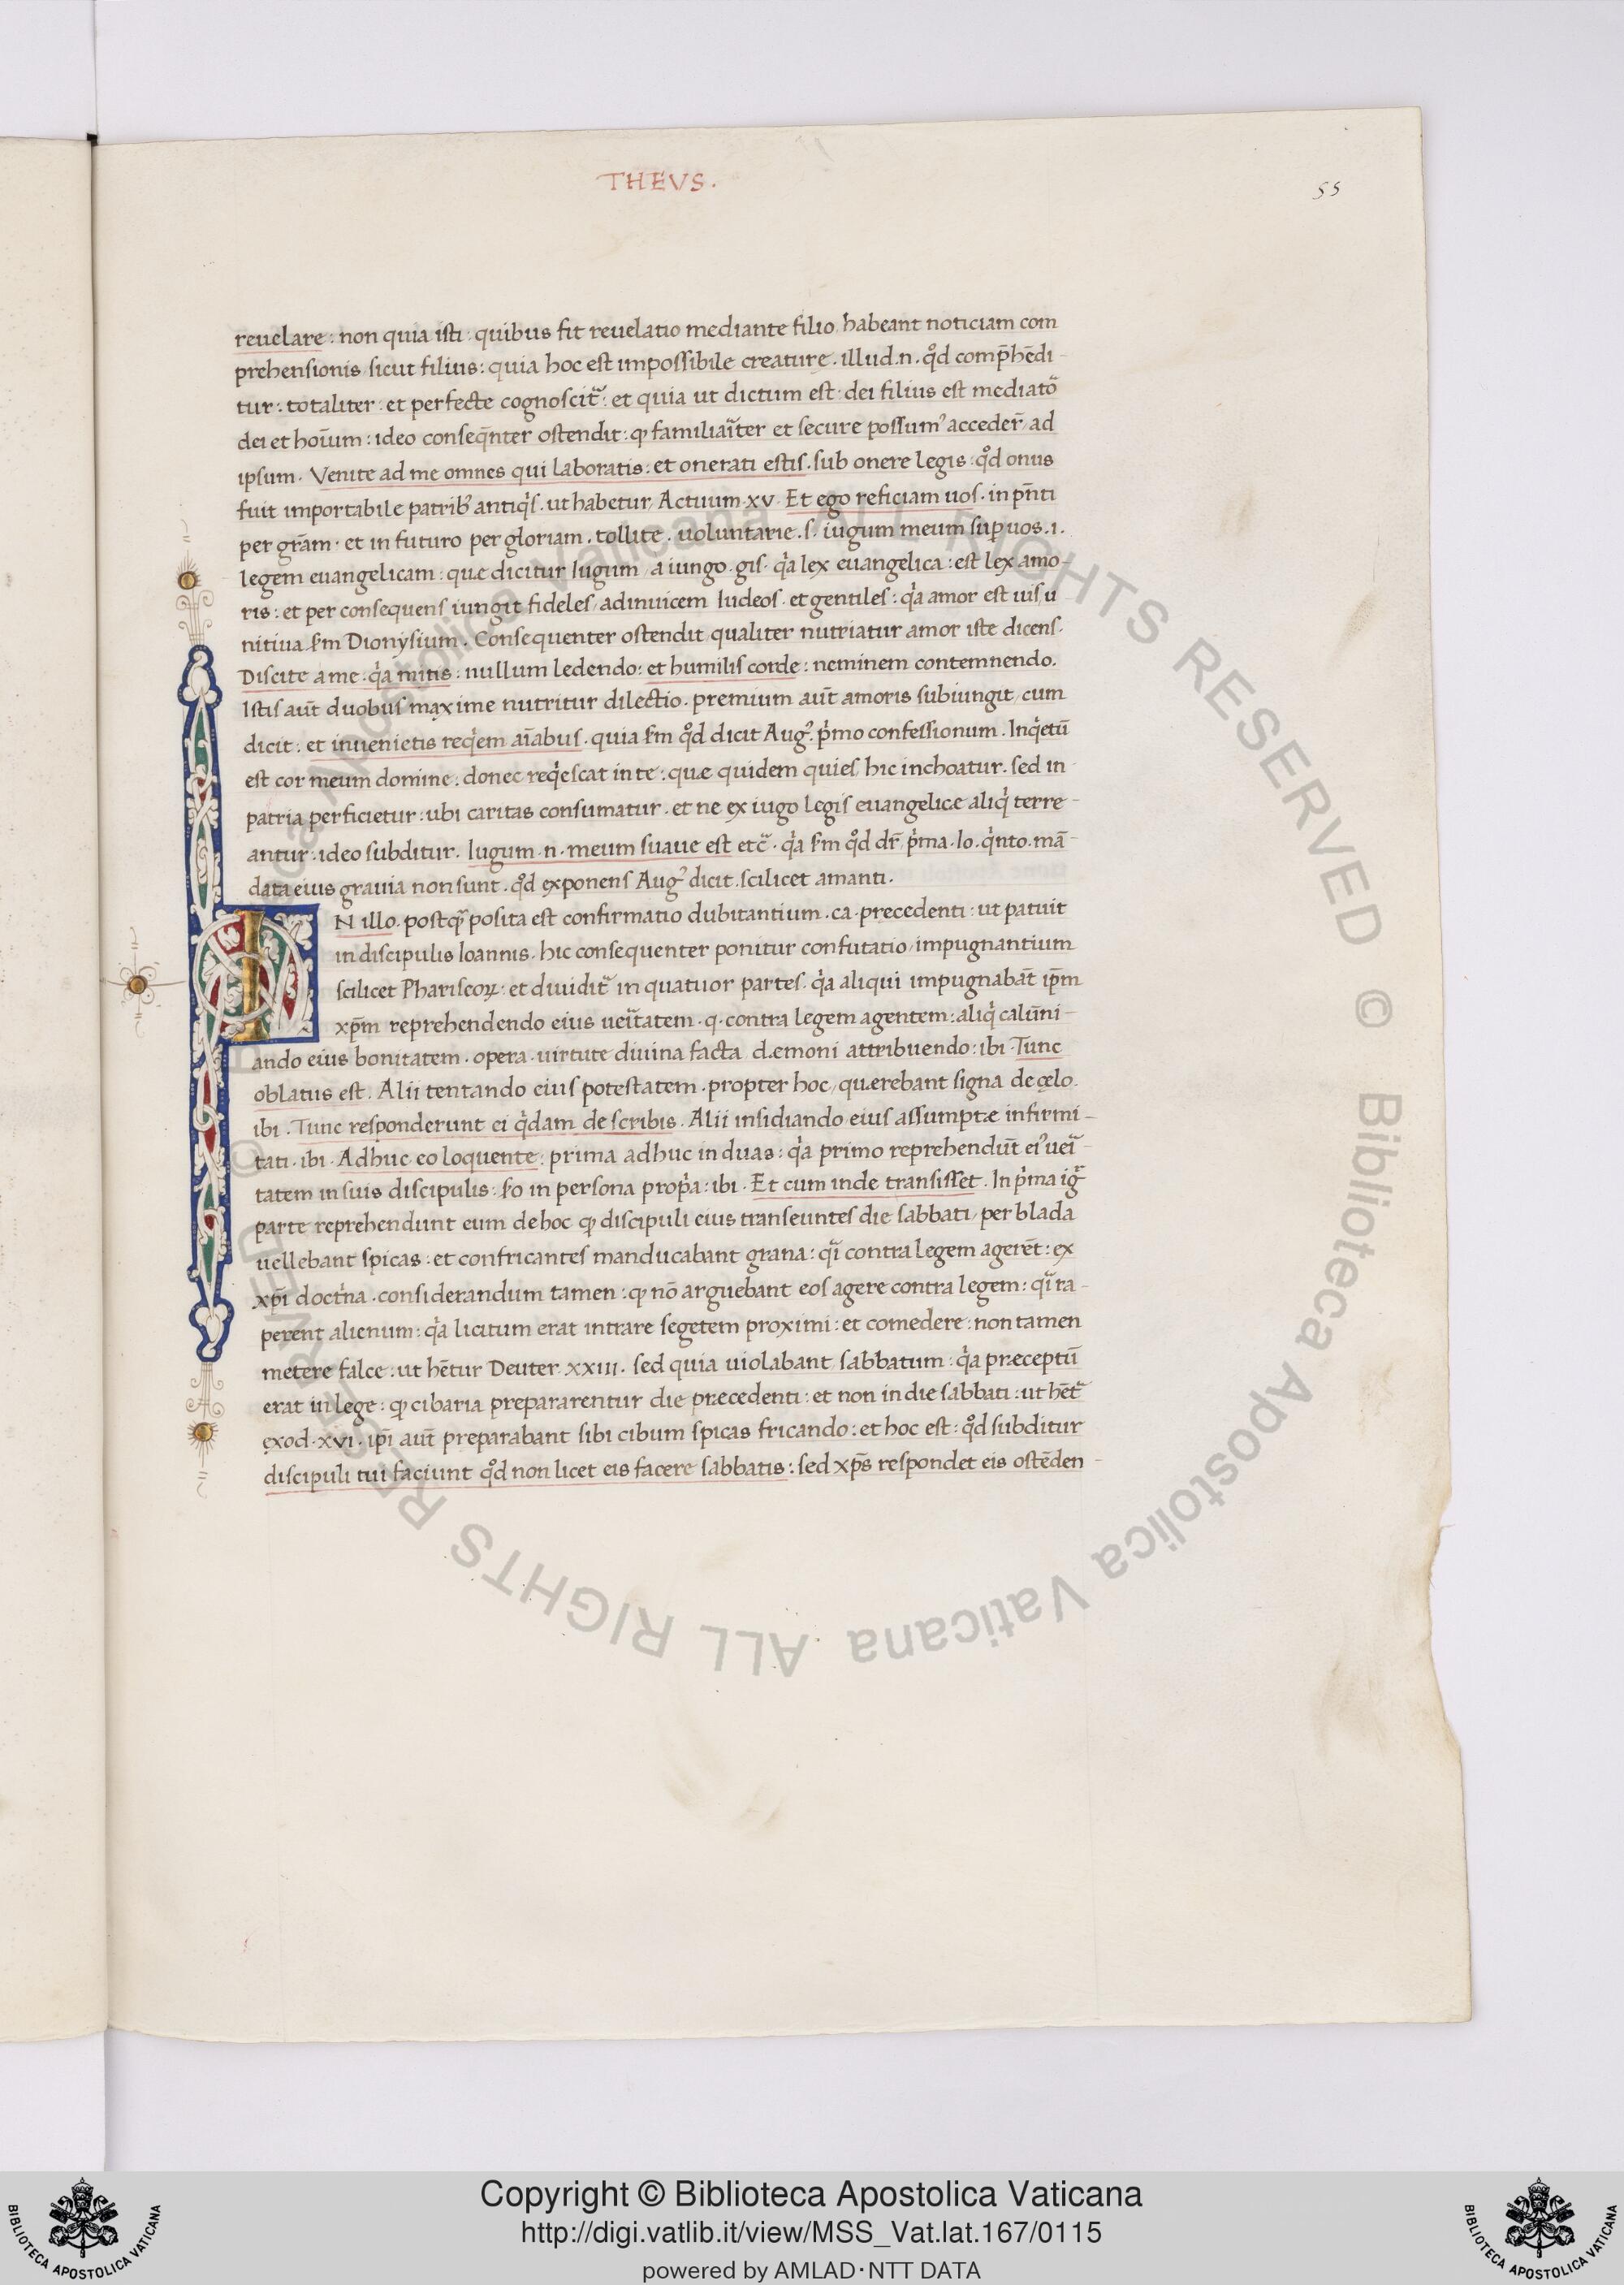 THEVS.
55
reuelare: non quia isti· quibus fit reuelatio mediante filio, habeant noticiam com
prehensionis, sicut filius: quia hoc est impossibile creature. illud .n. qd̊ comp̄hēdi-
tur: totaliter· et perfecte cognoscit᷑: et quia ut dictum est· dei filius est mediato᷑
dei et hoīum: ideo conseq̄nter ostendit: ꝙ familiaı᷑ter et secure possumꝰ accedere᷑ ad
ipsum· Venite ad me omnes qui laboratis: et onerati estis. sub onere legis: qd̊ onus
fuit importabile patribꝰ antiqͥs. ut habetur, Actuum·xv· Et ego reficiam uos· in pn̄ti
per gr̄am· et in futuro per gloriam. tollite. uoluntarie .s. iugum meum suꝑ uos .ı.
legem euangelicam: quæ dicitur Iugum, a iungo·gis· qͥa lex euangelica: est lex amo-
ris: et per consequens iungit fideles, adinuicem Iudeos· et gentiles: qͥa amor est uis, u
nitiua ẜm Dionysium. Consequenter ostendit, qualiter nutriatur amor iste dicens.
Discite a me: qͥa mitis: nullum ledendo: et humilis corde: neminem contemnendo.
Istis aut̄ duobus maxime nutritur dilectio. premium aut̄ amoris subiungit, cum
dicit. et inuenietis reqͥem aīabus. quia ẜm qd̊ dicit Augꝰ. pͥmo confessionum. Inqͥetū
est cor meum domine: donec reqͥescat in te: quæ quidem quies, hic inchoatur. sed in
patria perficietur: ubi caritas consumatur. et ne ex iugo legis euangelicæ aliqͥ terre-
antur: ideo subditur. Iugum ·n· meum suaue est etc᷑. qͥa ẜm qd̊ dr̄ pͥma·Io·qͥnto·mā-
data eius grauia non sunt. qd̊ exponens Augꝰ dicit. scilicet amanti.
IN illo. postqᷓ posita est confirmatio dubitantium·ca·precedenti: ut patuit
in discipulis Ioannis. hic consequenter ponitur confutatio, impugnantium
scilicet Phariseoꝝ: et diuidit᷑ in quatuor partes. qͥa aliqui impugnabāt ip̄m
xp̄m reprehendendo eius ueı᷑tatem·q·contra legem agentem: aliqͥ calūni-
ando eius bonitatem·opera·uirtute diuina facta dæmoni attribuendo: ibi·Tunc
oblatus est. Alii tentando eius potestatem·propter hoc, quærebant signa de cęlo.
ibi. Tunc responderunt ei qͥdam de scribis. Alii insidiando eius assumptæ infirmi-
tati·ibi·Adhuc eo loquente: prima adhuc in duas: qͥa primo reprehendūt eiꝰ ueı᷑-
tatem in suis discipulis: ẜo in persona propͥa: ibi·Et cum inde transisset. In pͥma ig᷑
parte reprehendunt eum de hoc ꝙ discipuli eius transeuntes die sabbati, per blada
uellebant spicas: et confricantes manducabant grana: qı᷑ contra legem agerēt: ex
xp̄i doctͥna·considerandum tamen: ꝙ nō arguebant eos agere contra legem: qı᷑ ra-
perent alienum: qͥa licitum erat intrare segetem proximi: et comedere: non tamen
metere falce: ut hētur Deuter·xxiii· sed quia uiolabant, sabbatum: qͥa præceptū
erat in lege: ꝙ cibaria prepararentur die præcedenti: et non in die sabbati: ut hēt᷑
ęxod·xvi· ip̄i aut̄ preparabant sibi cibum spicas fricando: et hoc est: qd̊ subditur
discipuli tui faciunt qd̊ non licet eis facere sabbatis: sed xp̄s respondet eis ostēden-
© Biblioteca Apostolica Vaticana ALL RIGHTS RESERVED
Copyright © Biblioteca Apostolica Vaticana
http://digi.vatlib.it/view/MSS_Vat.lat.167/0115
powered by AMLAD·NTT DATA
BIBLIOTECA APOSTOLICA VATICANA
BIBLIOTECA APOSTOLICA VATICANA